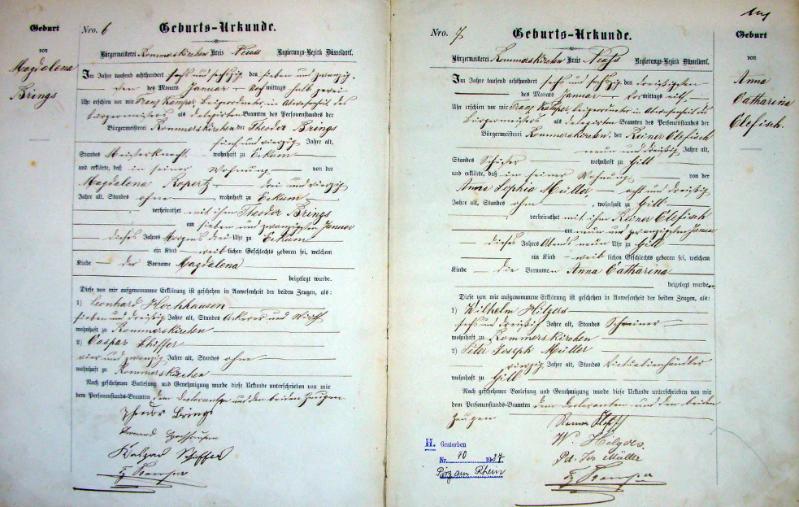 Geburt
von
Magdalena
Brings
Nro. 6 Geburts-Urkunde.
Bürgermeisterei Rommerskirchen Kreis Neuss Regierungs-Bezirk Düsseldorf.
Im Jahr tausend achthundert sechs und sechzig den sieben und zwanzig-
sten des Monats Januar Vormittags halb zwei
Uhr erschien vor mir Franz Beigeordneter in
Bürgermeisters als delegirten Beamten des Personenstandes der
Bürgermeisterei Rommerskirchen der Theodor Brings
fünf und vierzig Jahre alt,
Standes wohnhaft zu Eckum
und erklärte, daß in seiner Wohnung von der
Magdalena Ropertz drei und vierzig
Jahre alt, Standes ohne wohnhaft zu Eckum
verheirathet mit ihm Theodor Brings
am sieben und zwanzigsten Januar
dieses Jahres Morgens drei Uhr zu Eckum
ein Kind weiblichen Geschlechts geboren sei, welchem
Kinde der Vorname Magdalena
beigelegt wurde.
Diese von mir aufgenommene Erklärung ist geschehen in Anwesenheit der beiden Zeugen, als:
1) Leonhard Hochhausen
sieben und dreißig Jahre alt, Standes Ackerer und Wirth
wohnhaft zu Rommerskirchen
2) Caspar Schiffer
vier und zwanzig Jahre alt, Standes ohne
wohnhaft zu Rommerskirchen
Nach geschehener Vorlesung und Genehmigung wurde diese Urkunde unterschrieben von mir
dem Personenstands-Beamten dem Declaranten und den beiden Zeugen
Theodor Brings
Schiffer
Nro. 7 Geburts-Urkunde.
Bürgermeisterei Rommerskirchen Kreis Neuß Regierungs-Bezirk Düsseldorf.
Im Jahr tausend achthundert sechs und sechzig den dreißigsten
des Monats Januar Vormittags elf
Uhr erschien vor mir Franz Beigeordneter in
Bürgermeisters als delegirten Beamten des Personenstandes der
Bürgermeisterei Rommerskirchen der Reiner Olefisch
neun und dreißig Jahre alt,
Standes wohnhaft zu Gill
und erklärte, daß in seiner Wohnung von der
Anna Sophia Müller acht und dreißig
Jahre alt, Standes ohne wohnhaft zu Gill
verheirathet mit ihm Reiner Olefisch
am neun und zwanzigsten Januar
dieses Jahres Abends neun Uhr zu Gill
ein Kind weiblichen Geschlechts geboren sei, welchem
Kinde die Vornamen Anna Catharina
beigelegt wurde.
Diese von mir aufgenommene Erklärung ist geschehen in Anwesenheit der beiden Zeugen, als:
1) Wilhelm Hilgers
sechs und dreißig Jahre alt, Standes Schreiner
wohnhaft zu Rommerskirchen
2) Peter Joseph Müller
vierzig Jahre alt, Standes
wohnhaft zu Gill
Nach geschehener Vorlesung und Genehmigung wurde diese Urkunde unterschrieben von mir
dem Personenstands-Beamten dem Declaranten und den beiden
Zeugen
W. Hilgers
Pet. Jos Müller
H. Gestorben
Nr. 10
Porz am Rhein
Geburt
von
Anna
Catharina
Olefisch.